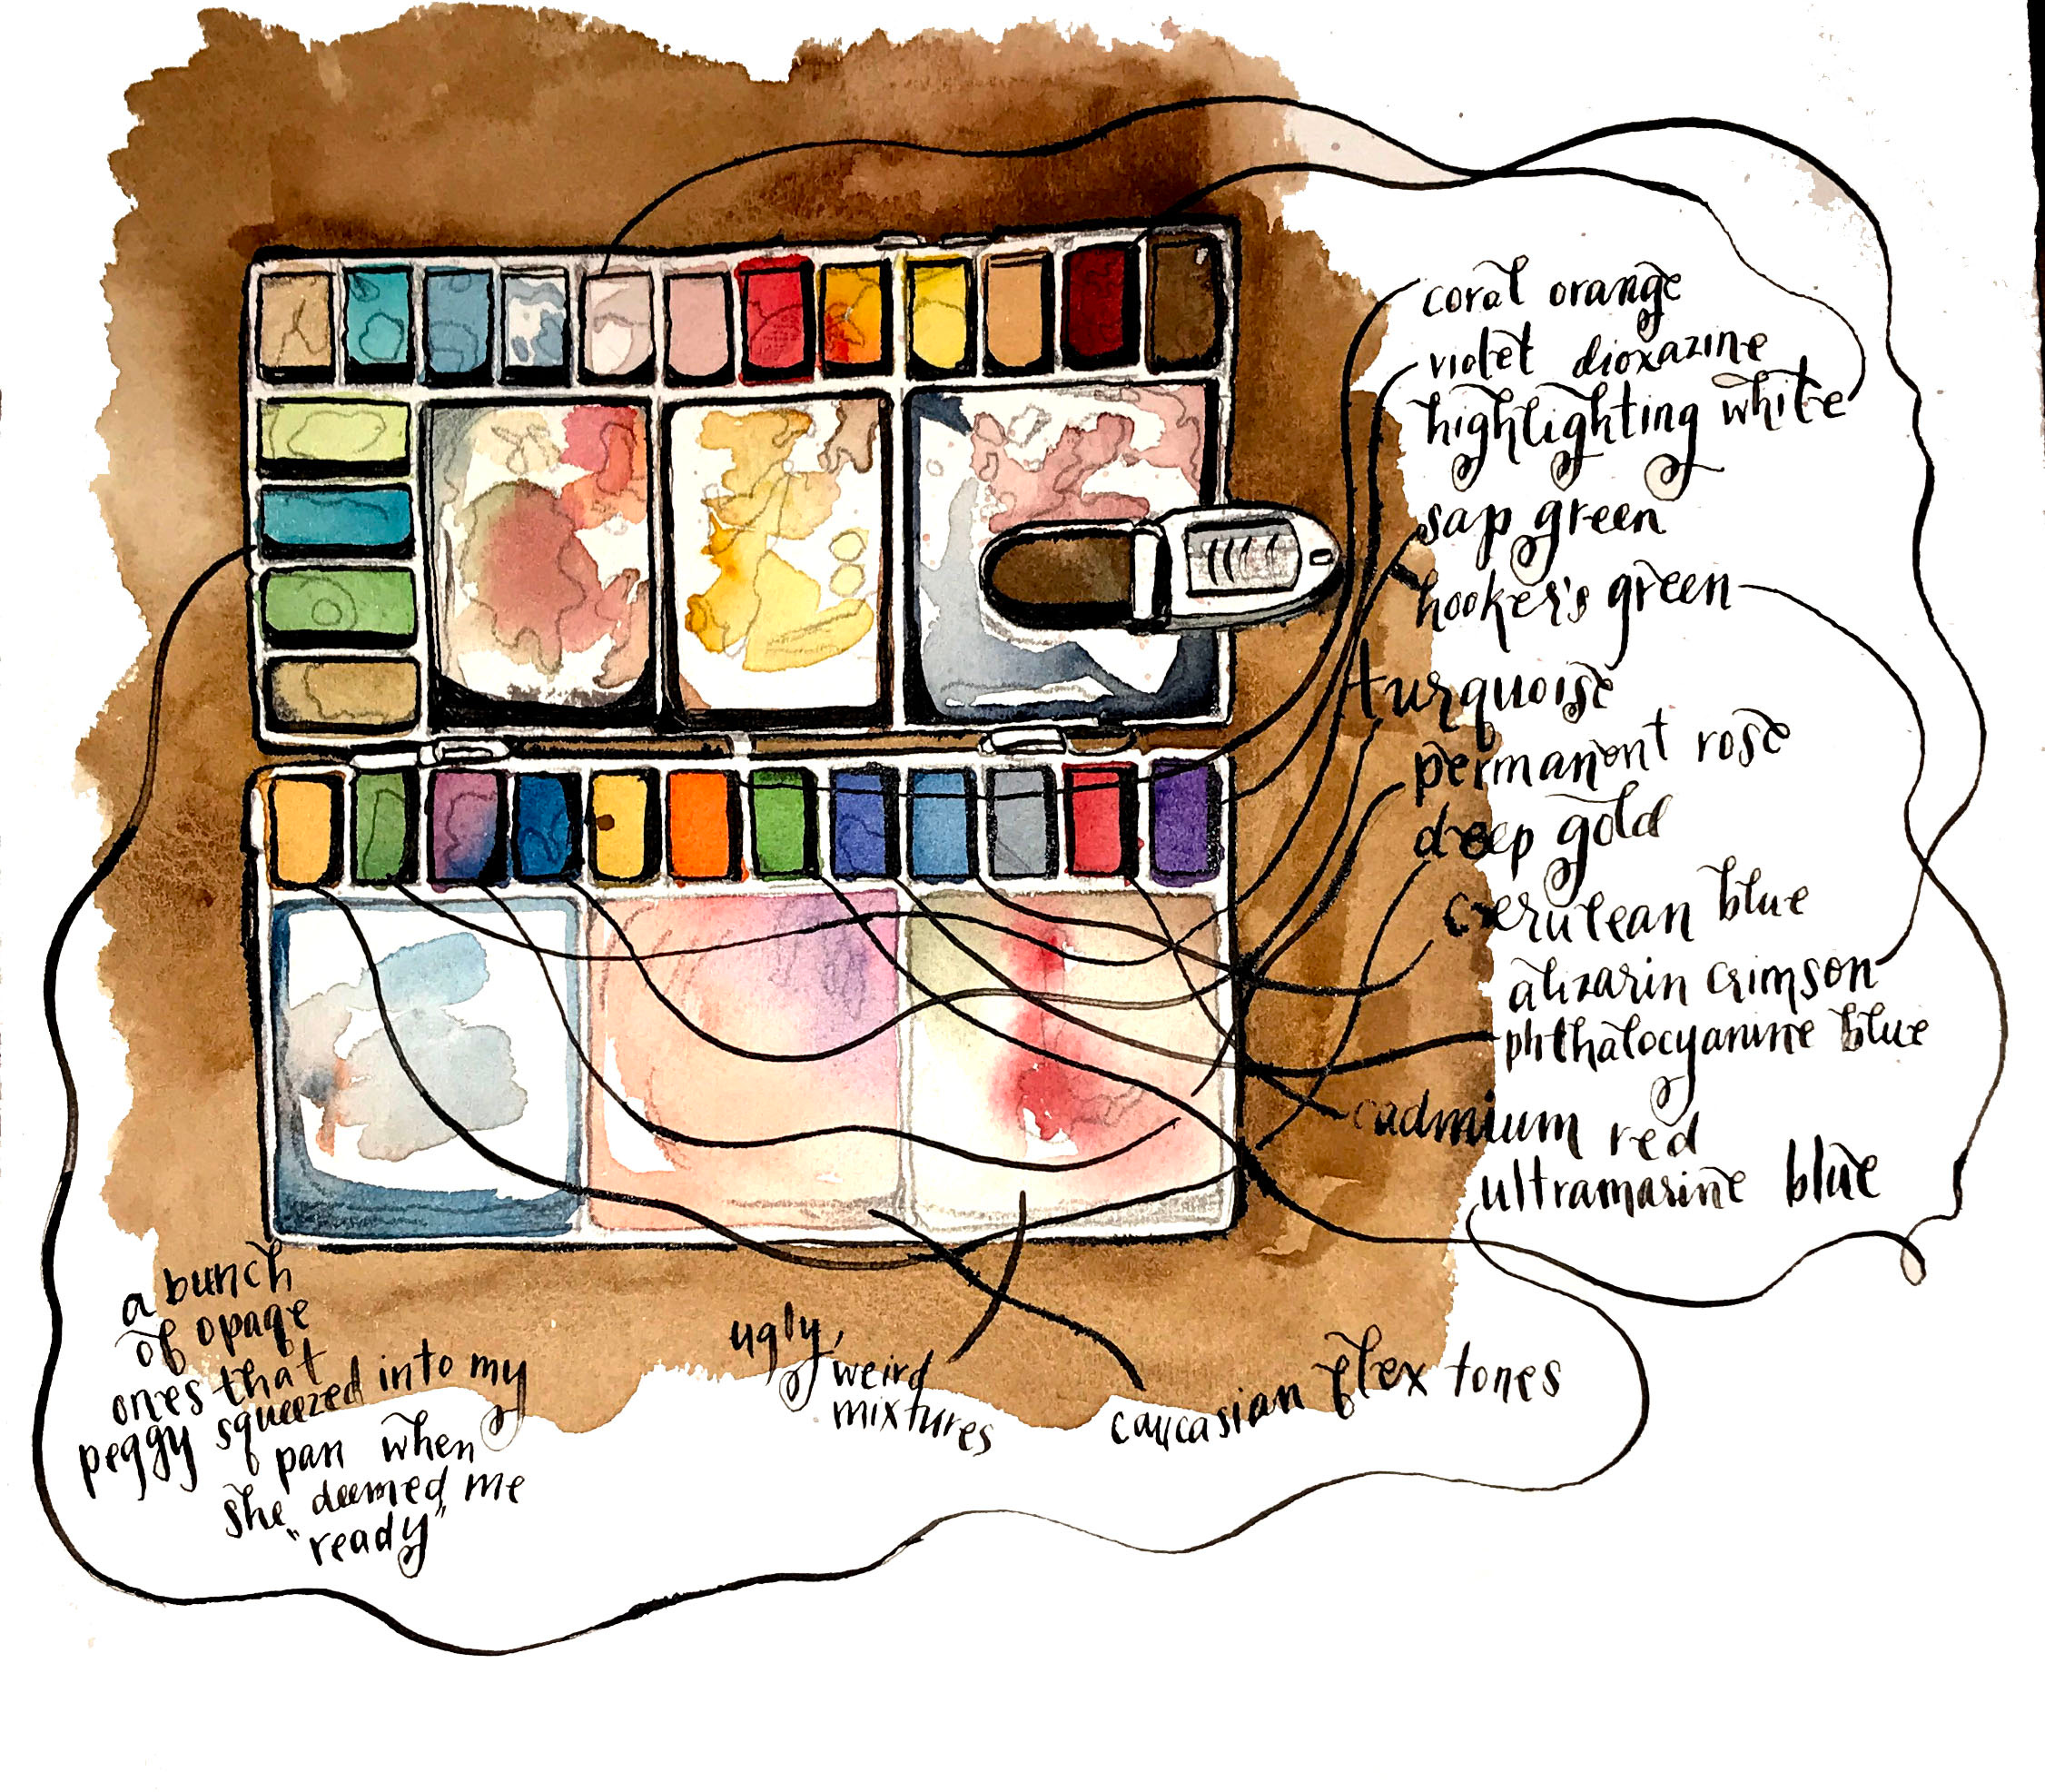 coral orange
violet dioxazine
highlighting white
sap green
hooker's green
turquoise
permanent rose
deep gold
cerulean blue
alizarin crimson
phthalocyanine blue
cadmium red
ultramarine blue
a bunch
of opaqe
ones that
peggy squeezed into my
pan when
she deemed me
"ready"
ugly,
weird
mixtures
caucasian flex tones